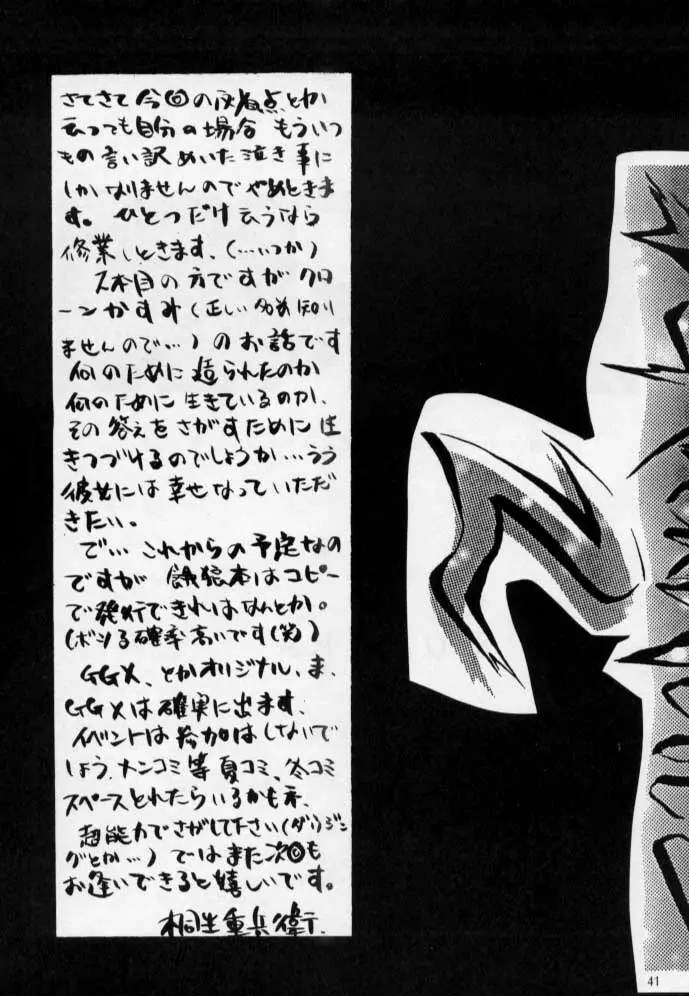 さてさて今回の反省点とか
云っても自分の場合 もういつ
もの言い訳めいた泣き事に
しかなりませんのでやめときま
す。ひとつだけ云うなら
修業しときます、(……いつか)
本目の方ですがクロ
ーンかすみ(正しい名前知り
ませんので…)のお話です
何のために造られたのか
何のために生きているのか、
その答えをさがすために生
きつづけるのでしょうか…うう
彼女には幸せなっていただ
きたい。
で… これからの予定なの
ですが 餓狼本はコピー
で発行できればなんとか。
(ボツる確率高いです(笑))
GGX、とかオリジナル、ま、
GGXは確実に出ます、
イベントは参加はしないで
しょう、ナンコミ等夏コミ、冬コミ
スペースとれたらいるかもネ、
超能力でさがして下さい(ダウジン
グとか…)ではまた次回も
お逢いできると嬉しいです。
桐生重兵衛.
41